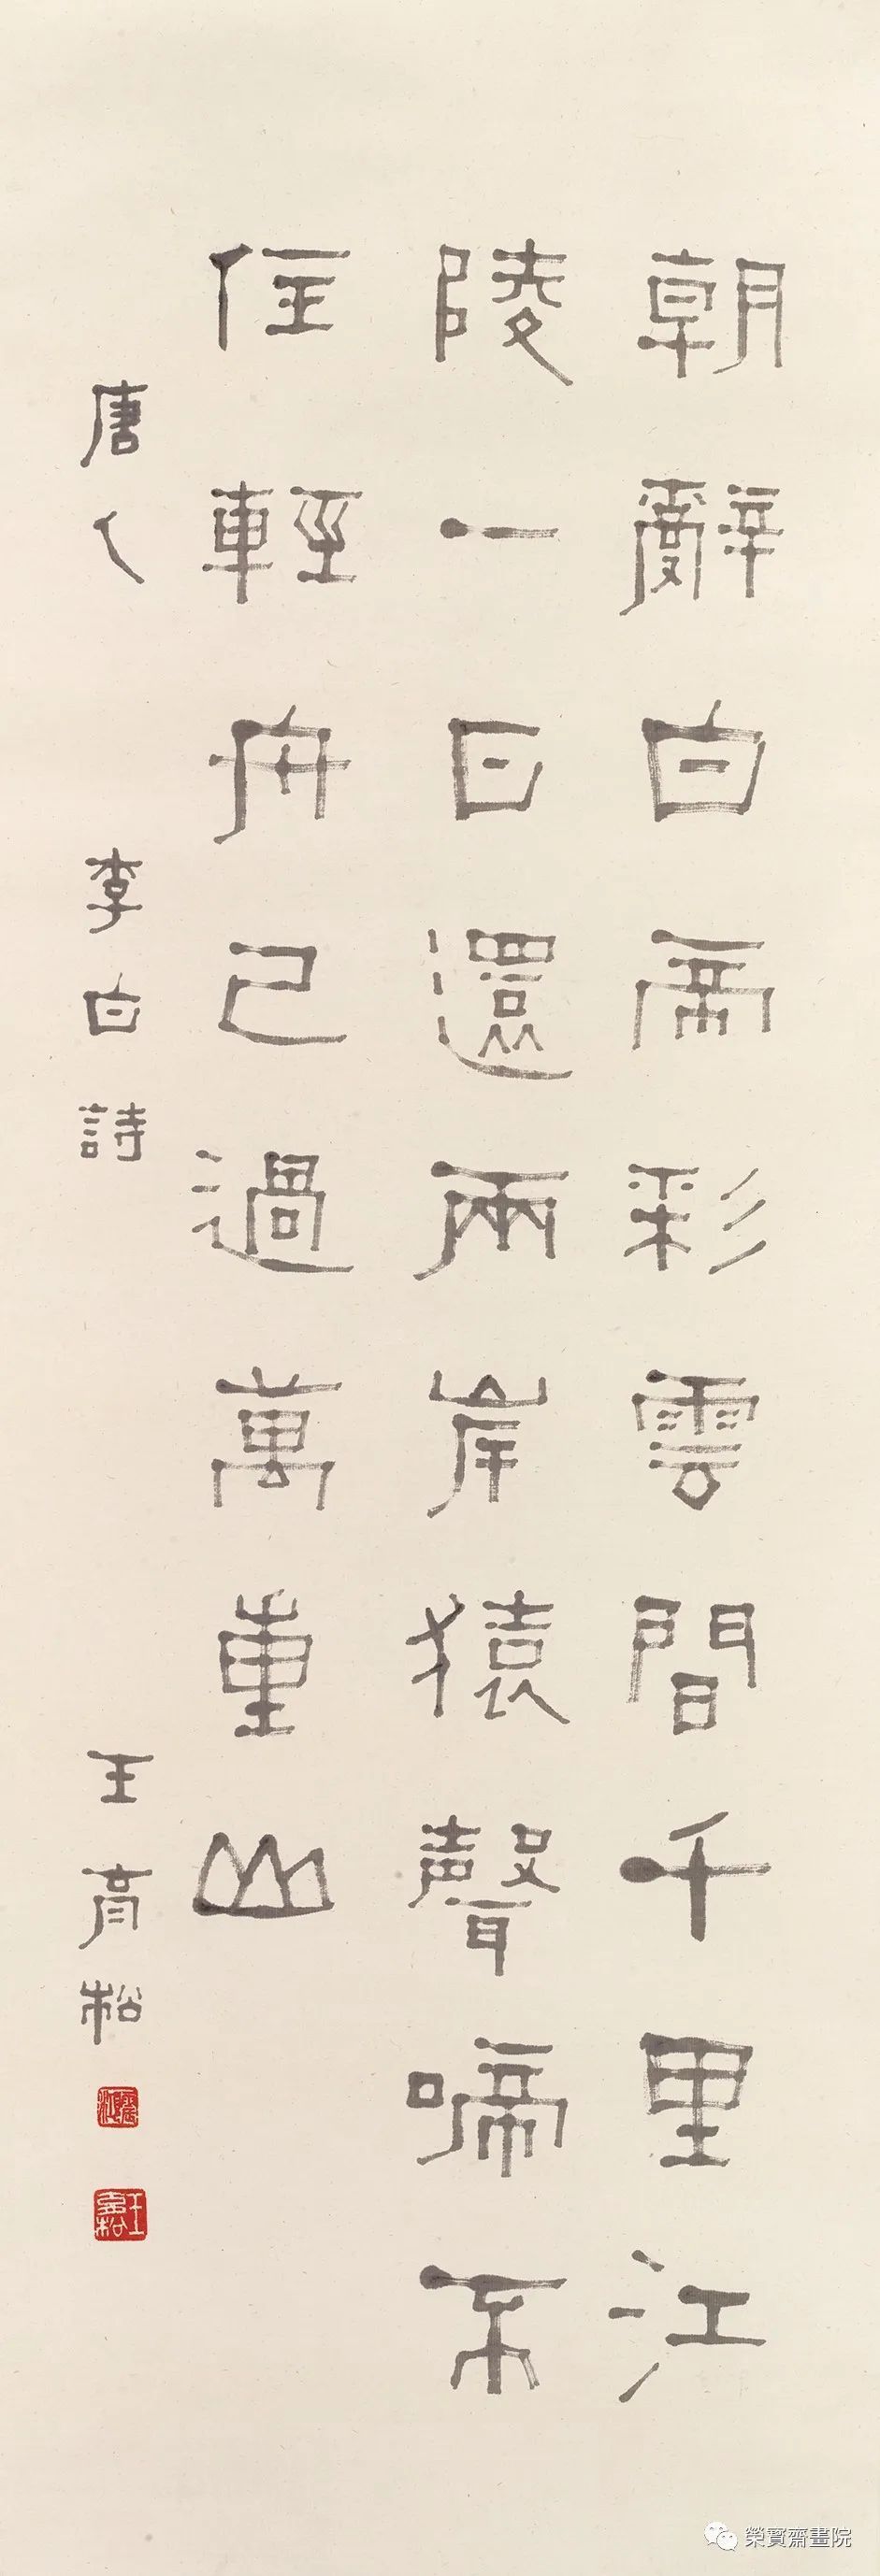 朝辭白帝彩雲間千里江
陵一日還兩岸猿聲啼不
住輕舟已過萬重山
唐人 李白詩 王松
榮寶齋畫院